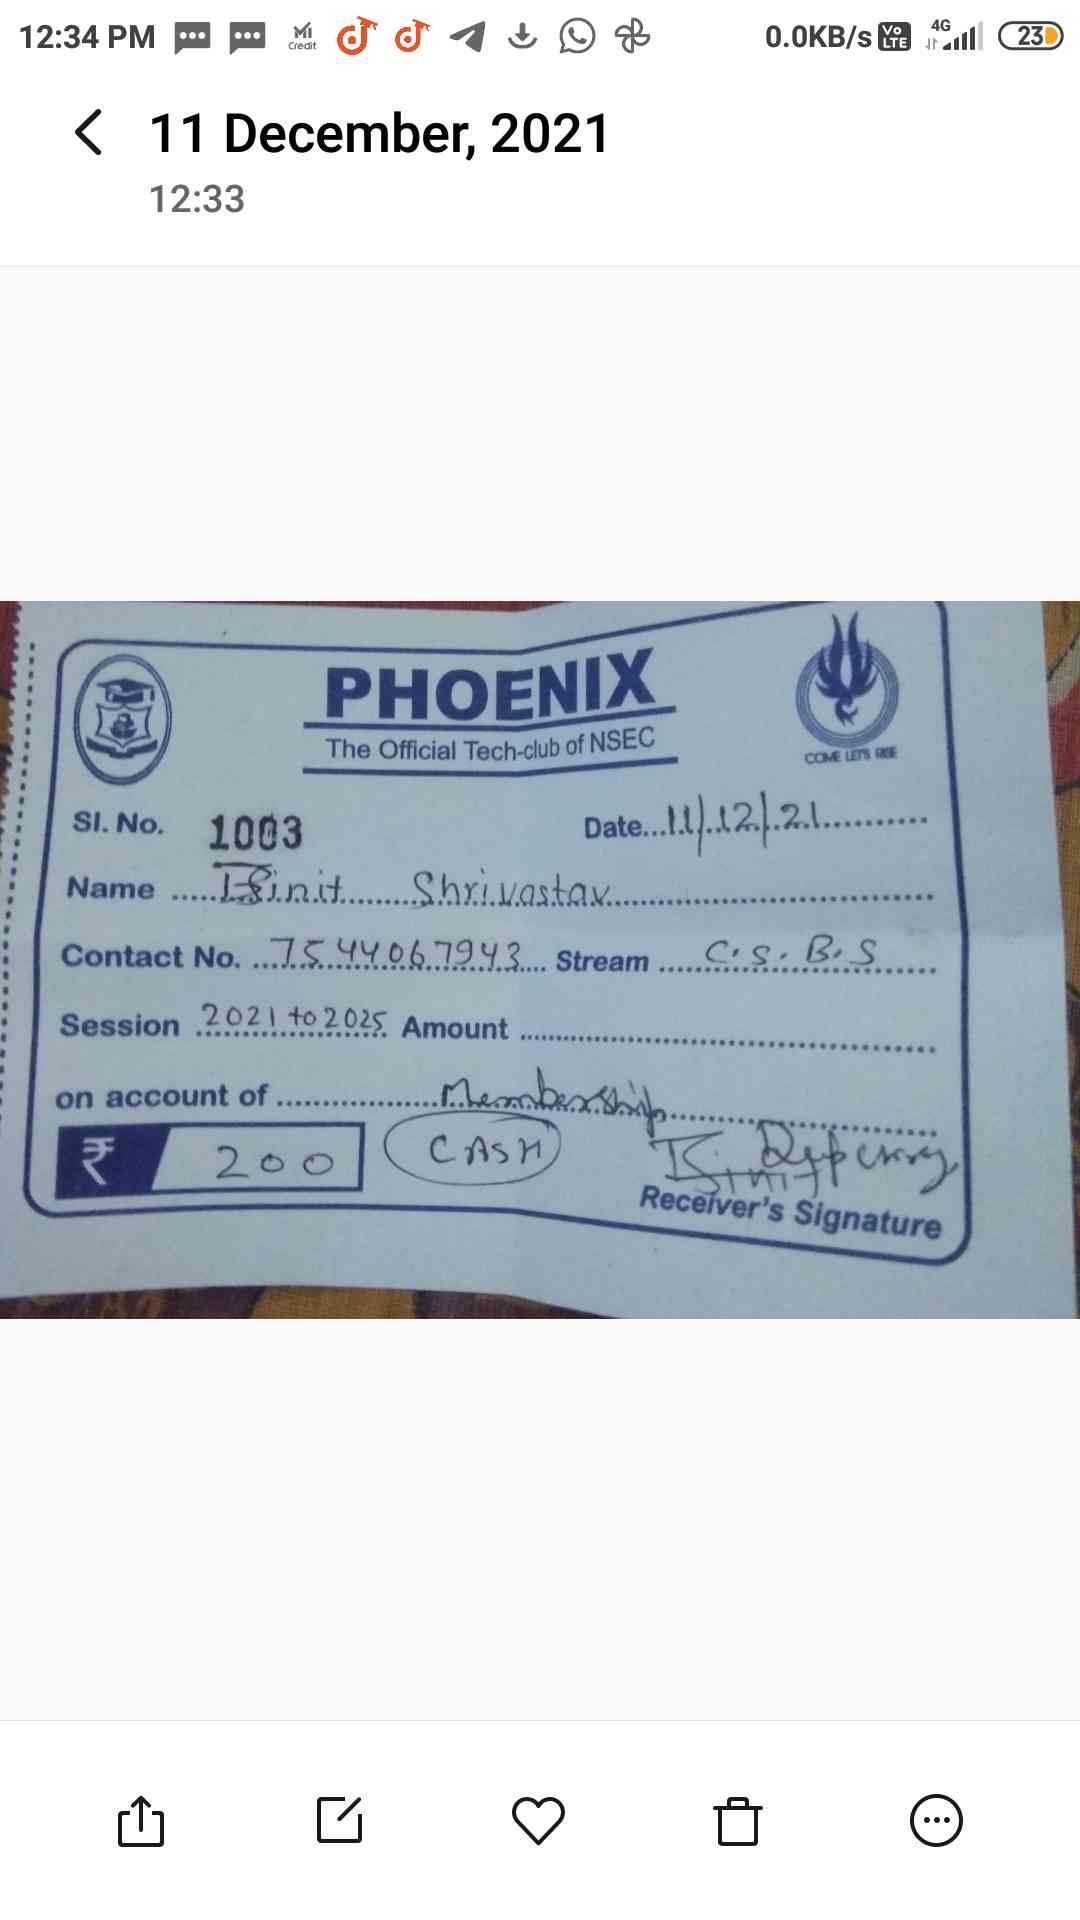 12:34 PM Mi Credit 0.0KB/s Vo LTE 4G 23
11 December, 2021
12:33
PHOENIX
The Official Tech-club of NSEC
COME LET'S RISE
Sl. No. 1003 Date...11/12/21..........
Name .....Binit........Shrivastav..............................
Contact No. ...7544067943.... Stream .....C.S.B.S......
Session 2021 to 2025 Amount ..........................................
on account of .................Membership...........................
₹ 200 CASH Binit
Receiver's Signature